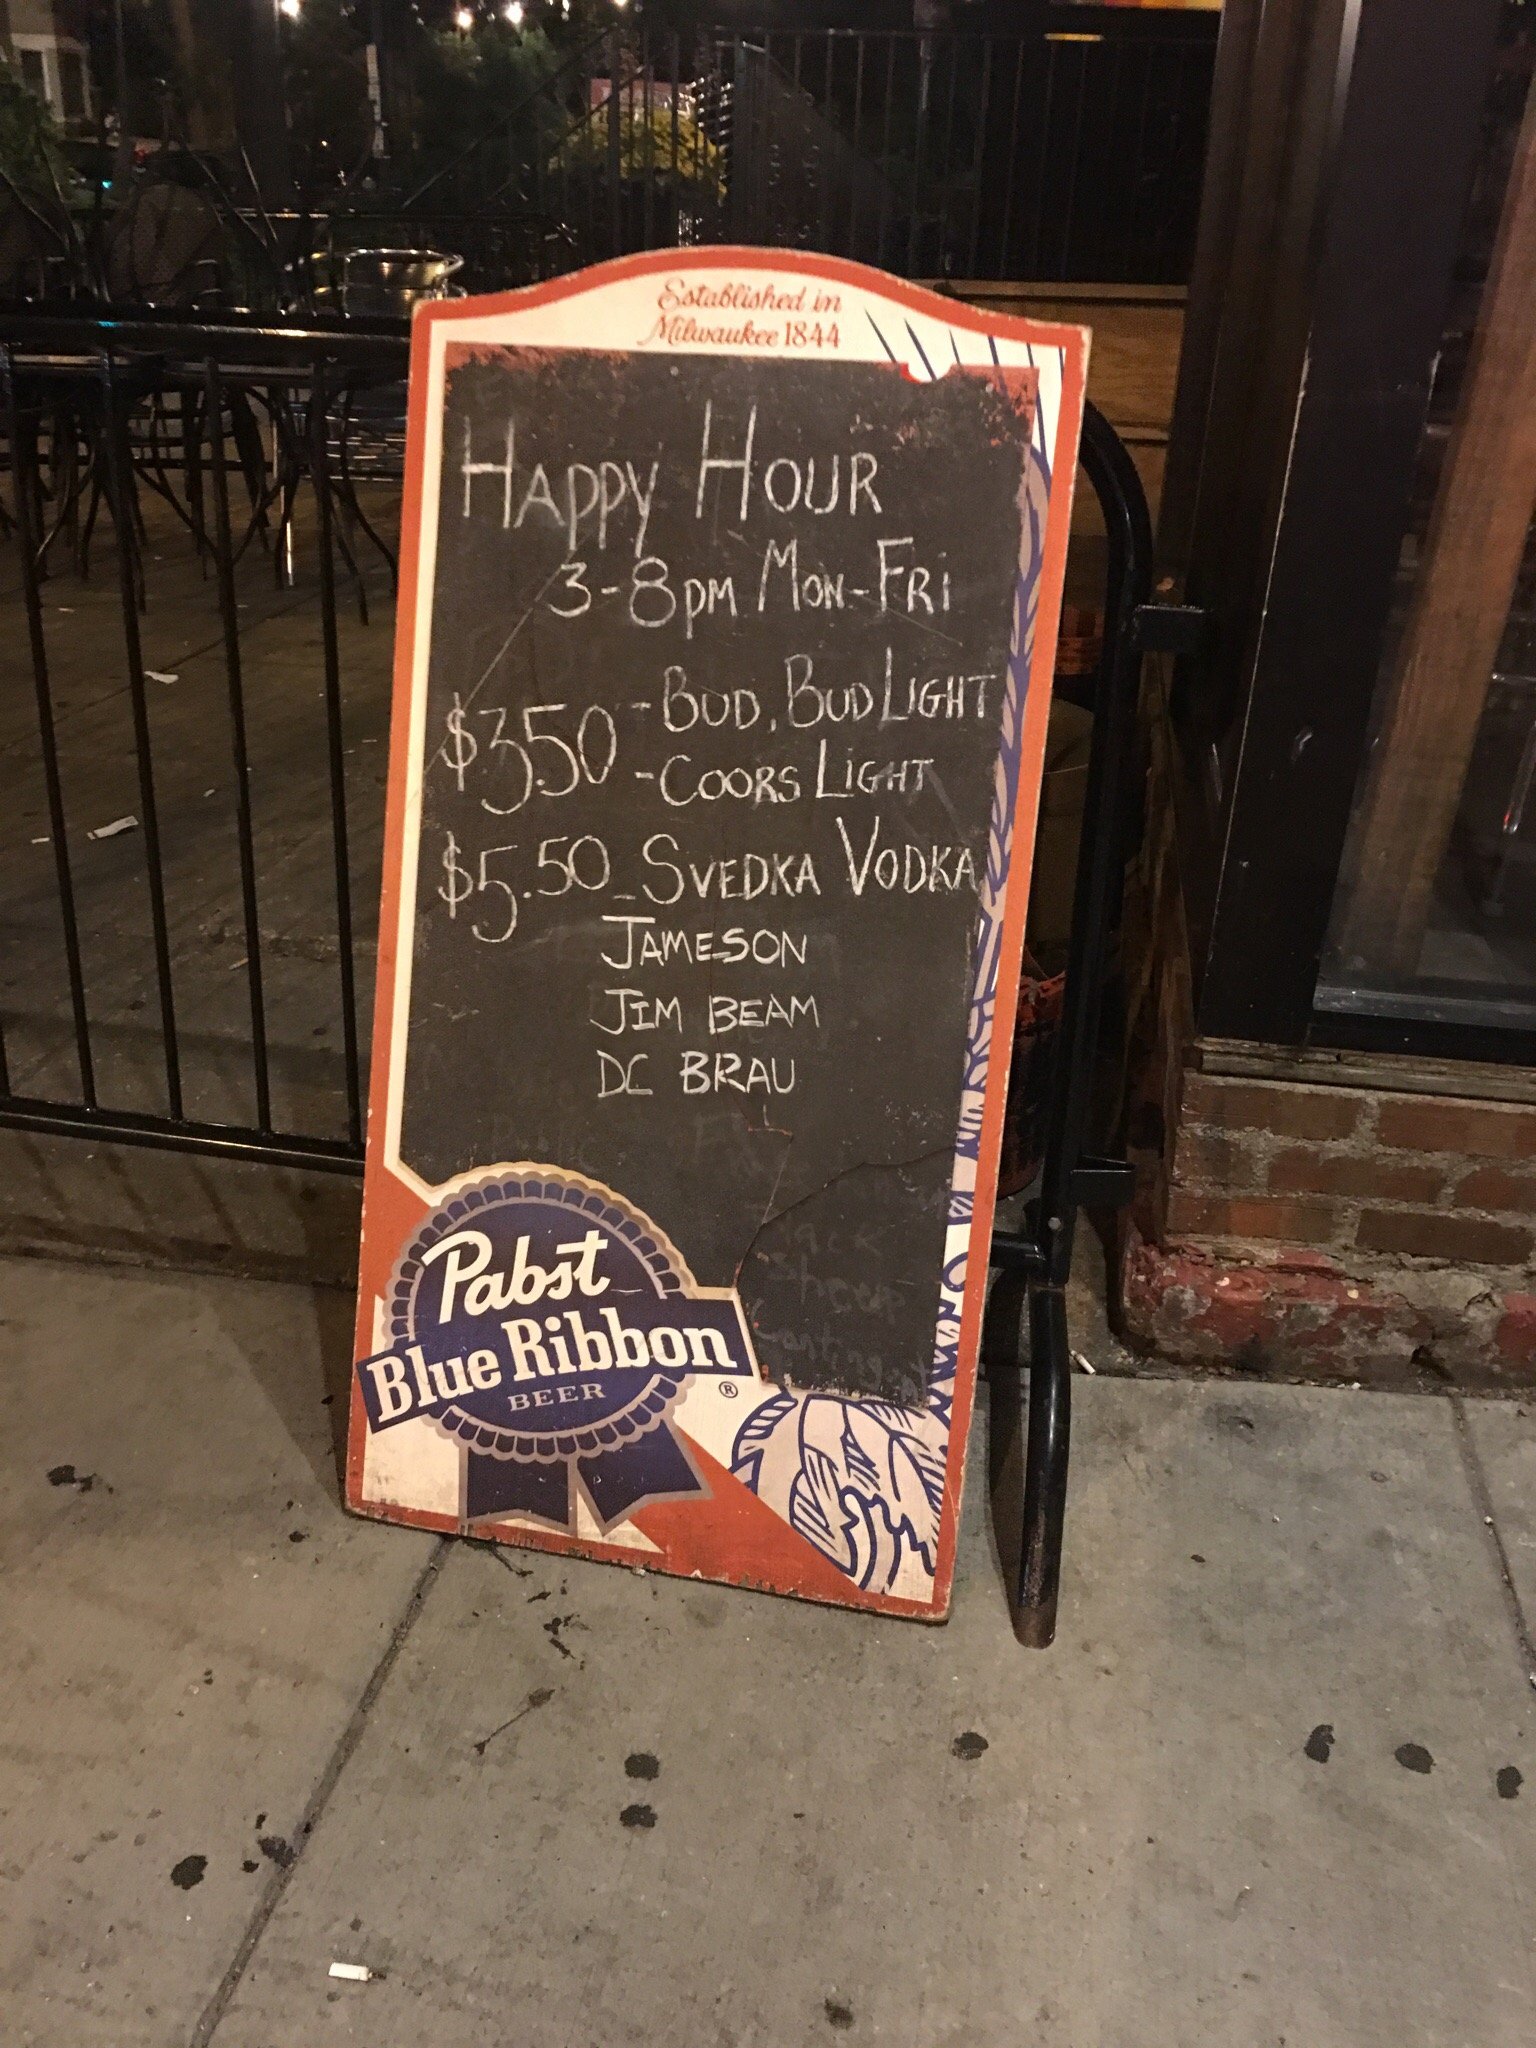 Established in
Milwaukee 1844
HAPPY HOUR
3-8PM MON-FRi
$3.50 - BUD, BUD LIGHT
- COORS LIGHT
$5.50 - SVEDKA VODKA
JAMESON
JIM BEAM
DC BRAU
Pabst
Blue Ribbon
BEER ®